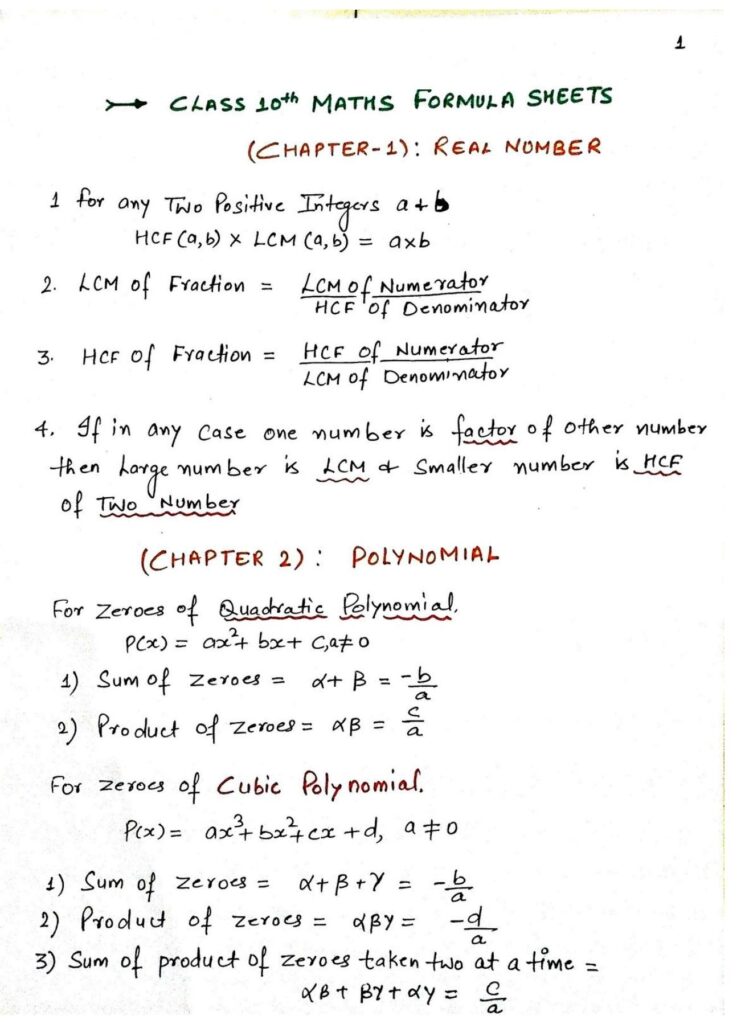 1
→ CLASS 10th MATHS FORMULA SHEETS
(CHAPTER-1): REAL NUMBER
1 for any Two Positive Integers a & b
HCF(a,b) × LCM (a,b) = a×b
2. LCM of Fraction = LCM of Numerator / HCF of Denominator
3. HCF of Fraction = HCF of Numerator / LCM of Denominator
4. If in any case one number is factor of other number
then Large number is LCM & Smaller number is HCF
of Two Number
(CHAPTER 2): POLYNOMIAL
For Zeroes of Quadratic Polynomial.
P(x) = ax²+ bx+ c,a≠0
1) Sum of zeroes = α+ β = -b/a
2) Product of zeroes = αβ = c/a
For zeroes of Cubic Polynomial.
P(x) = ax³+bx²+cx +d, a ≠ 0
1) Sum of zeroes = α+β+γ = -b/a
2) Product of zeroes = αβγ = -d/a
3) Sum of product of zeroes taken two at a time =
αβ+ βγ+αγ = c/a